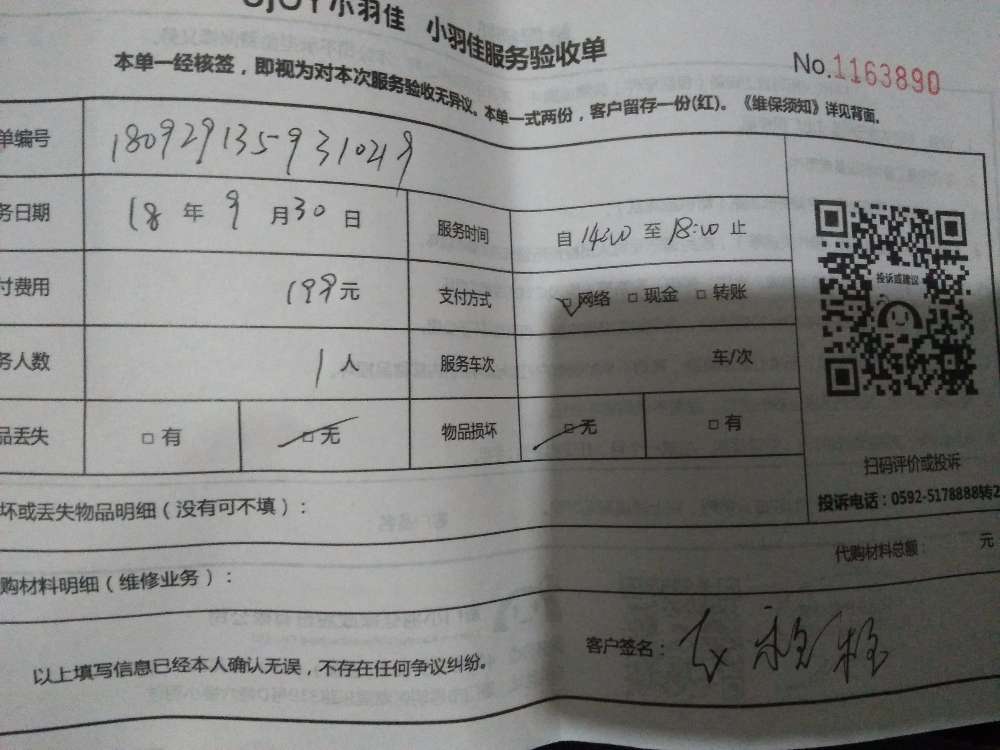 小羽佳 小羽佳服务验收单
No.1163890
本单一经核签，即视为对本次服务验收无异议。本单一式两份，客户留存一份(红)。《维保须知》详见背面。
单编号 180929135931029
务日期 18 年 9 月 30 日 服务时间 自 14:00 至 18:00 止
付费用 199 元 支付方式 □网络 □现金 □转账
务人数 1 人 服务车次 车/次
品丢失 □有 □无 物品损坏 □无 □有
投诉或建议
扫码评价或投诉
投诉电话：0592-5178888转2
坏或丢失物品明细（没有可不填）：
代购材料总额： 元
购材料明细（维修业务）：
以上填写信息已经本人确认无误，不存在任何争议纠纷。
客户签名：